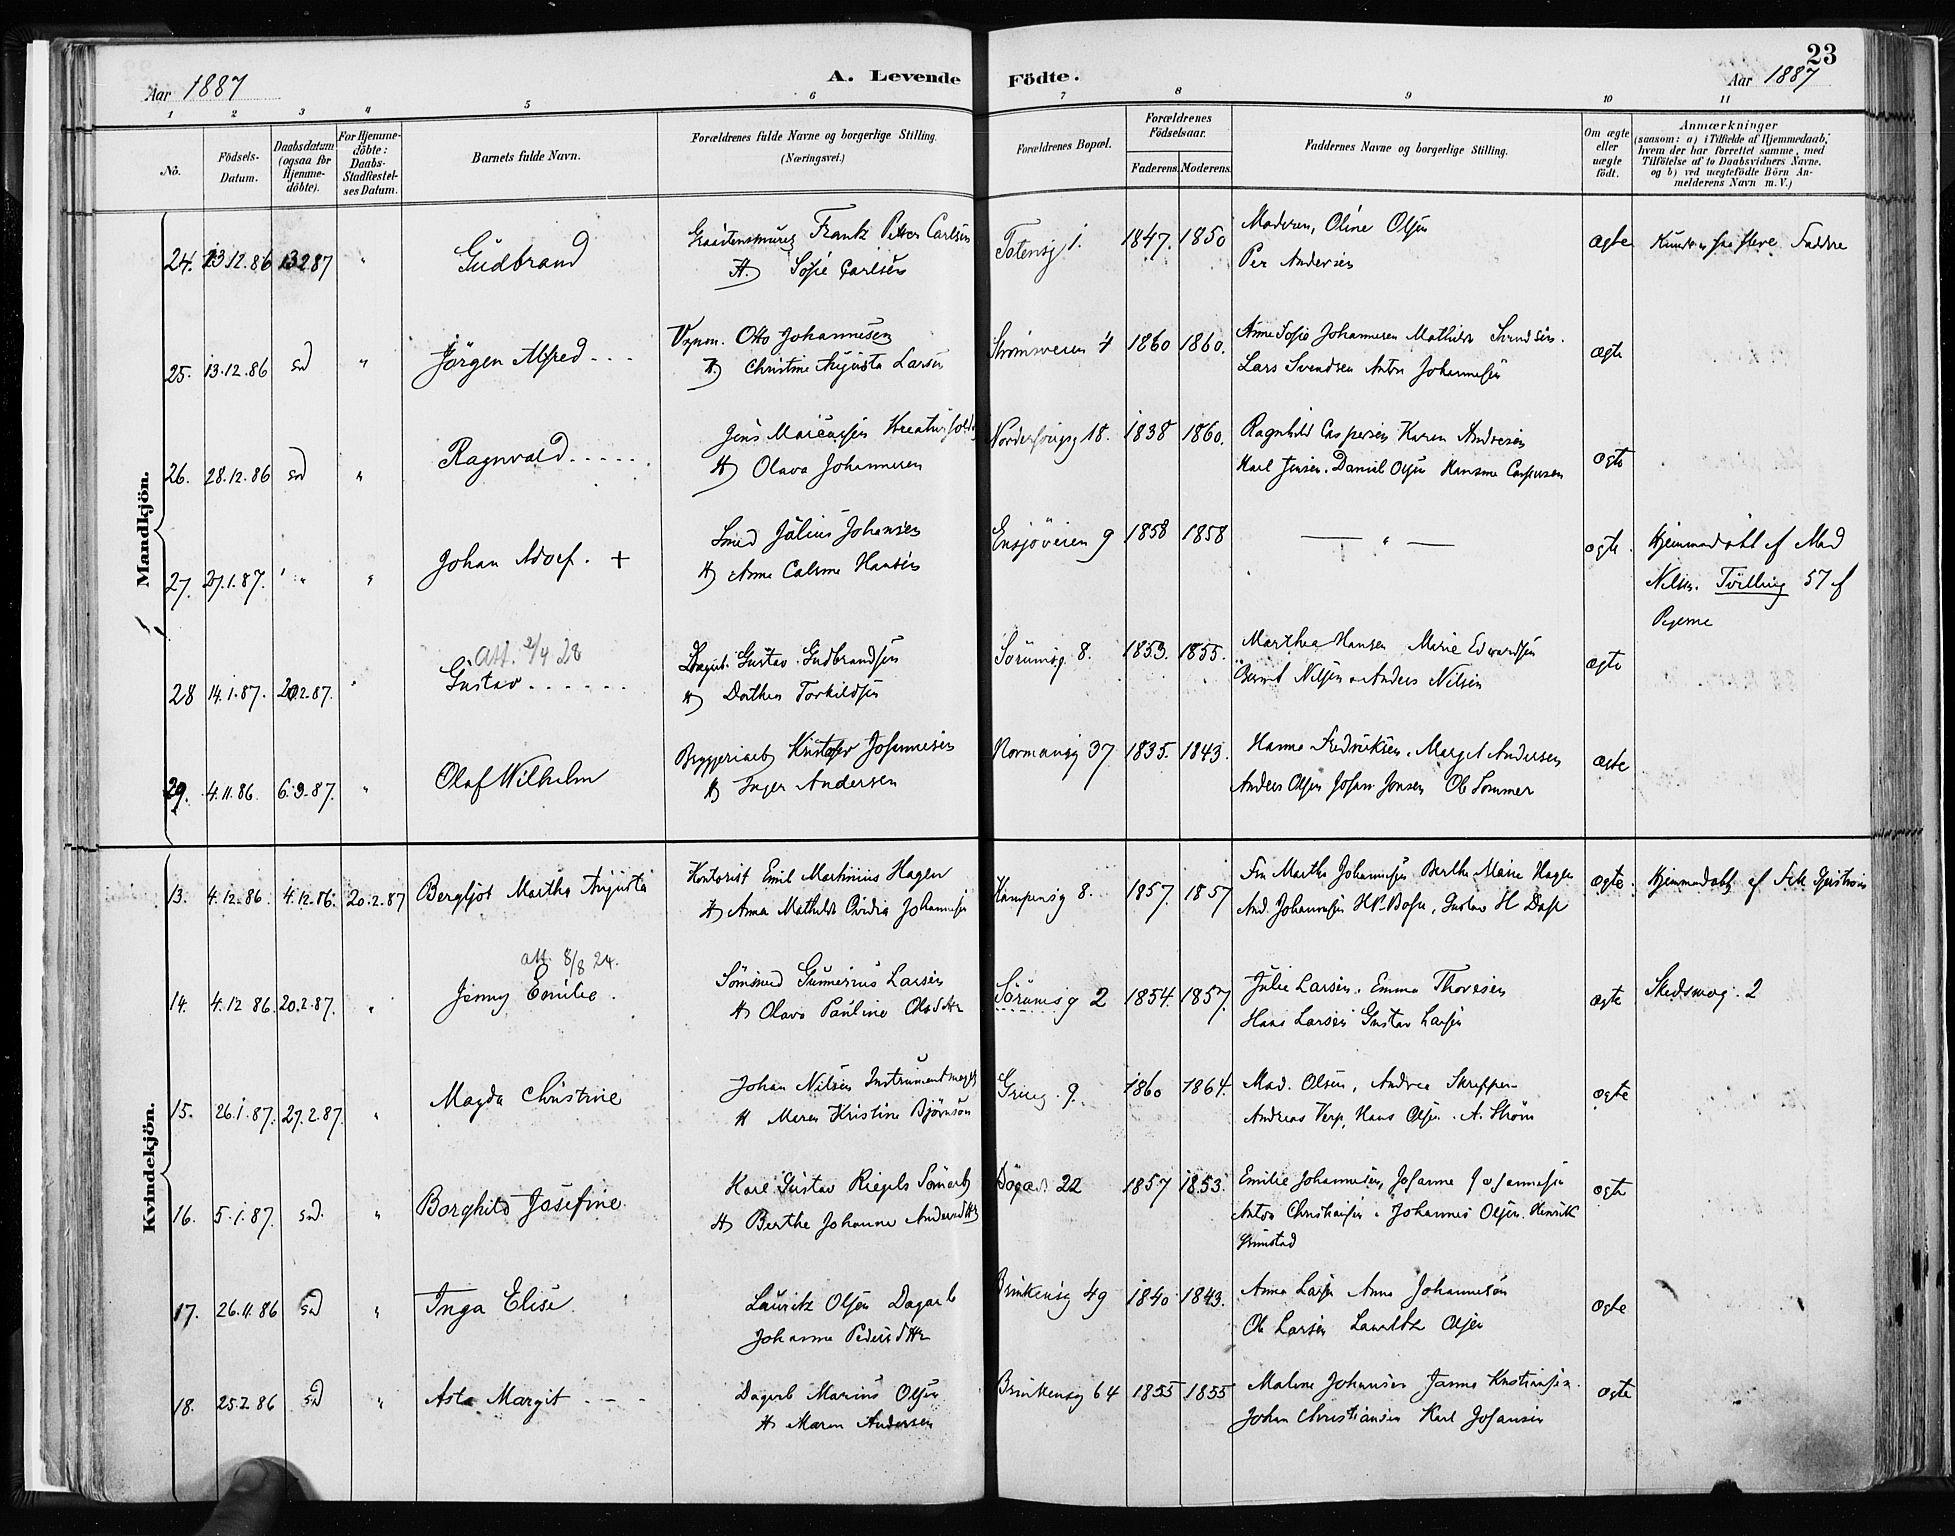 23
Aar 1887
A. Levende Födte.
Aar 1887
1 2 3 4 5 6 7 8 9 10 11
No.
Födsels-Datum.
Daabsdatum (ogsaa for Hjemme-döbte).
For Hjemme-döbte: Daabs-Stadfæstel-ses Datum.
Barnets fulde Navn.
Forældrenes fulde Navne og borgerlige Stilling. (Næringsvei.)
Forældrenes Bopæl.
Forældrenes Födselsaar.
Faderens. Moderens.
Faddernes Navne og borgerlige Stilling.
Om ægte eller uægte födt.
Anmærkninger
(saasom: a) i Tilfælde af Hjemmedaab, hvem der har forrettet samme, med Tilföielse af to Daabsvidners Navne, og b) ved uægtefödte Börn An-melderens Navn m. V.)
Mandkjön.
24. 13.12.86 13287 " Gudbrand Frank Petter Carlsen Totensg 1. 1847. 1850 Moderen, Oline Olsen ægte
H) Sofie Carlsen Per Andersen
25. 13.12.86 sd " Jörgen Alfred Otto Johannesen Strömsveien 4 1860 1860. Anne Sofie Johannesen Mathilde Svendsen. ægte
H) Christine Augusta Larsen Lars Svendsen Anton Johannesen
26. 28.12.86 sd " Ragnvald Jens Marcussen 18. 1838 1860. Ragnhild Caspersen Karen Andresen ægte
H) Olava Johannesen Karl Jensen. Daniel Olsen Hansine Caspersen
27. 27.1.87. " " Johan Adolf. + Smed Julius Johansen Ensjöveien 9 1858 1858 — " — ægte. Hjemmedøbt af Mad
H) Anne Hansen Nilsen. Tvilling 57 af
Pigerne
att. 2/4 28
28 14.1.87. 20.2.87. " Gustav Gustav Gudbrandsen Sorumsg. 8. 1853. 1855. Marthea Hansen Marie Edvardsen ægte
H) Dorthea Torkildsen Bernt Nilsen Anders Nilsen
29. 4.11.86. 6.3.87. " Olaf Wilhelm Bryggeriarb Kristofer Johannesen Normansg 37 1835. 1843. Hanna Fredriksen. Marget Andersen ægte
H) Inger Andersen Anders Olsen Johan Jonsen Ole Sommer
Kvindekjön.
13. 4.12.86. 4.12.86. 20.2.87 Bergljot Martha Augusta Kontorist Emil Martinius Hagen Kampensg 8. 1857. 1857 Martha Johannesen Berthe Marie Hagen ægte. Hjemmedøbt af
H Anna Mathilde Johannesen And. Johannesen Gustav H
att. 8/8 24.
14. 4.12 86. 20.2.87. " Jenny Emilie. Gunerius Larsen Sörumsg 2 1854. 1857. Julie Larsen. Emma Thoresen ægte Skedsmog. 2
H Olava Pauline Olsdttr Hans Larsen Gustav Larsen
15. 26.1.87. 27.2.87. " Magda Christine Johan Nilsen Instrumentmager 9. 1860 1864. Mad. Olsen, Andrea ægte
H Maren Kristine Björnson Andreas Hans Olsen. A. Ström
16. 5.1.87. sd. " Borghild Josefine Karl Gustav 22 1857 1853. Emilie Johannesen, Johanne Johannesen ægte
H Berthe Johanne Andersdttr Anton Christiansen. Johannes Olsen. Henrik
Grimstad
17. 26.11.86 sd " Inga Elise. Lauritz Olsen Dagarb Brinkensg 49 1840 1843. Anna Larsen Anna Johannesen ægte
Johanne Pedersdttr Ole Larsen Lauritz Olsen
18. 25.2 86 sd " Asta Margit Dagarb Marius Olsen Brinkensg 64 1855 1855 Malene Johansen Janna Kristiansen. ægte
H Maren Andersen Johan Christiansen Karl Johansen